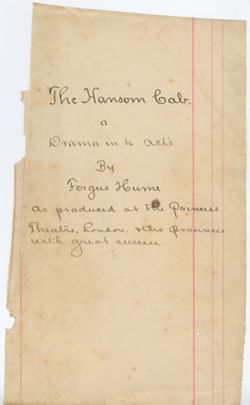 The Hansom Cab.
a
Drama in 4 acts
By
Fergus Hume
as produced at the Princess
Theatre, London, & the Provinces
with great success